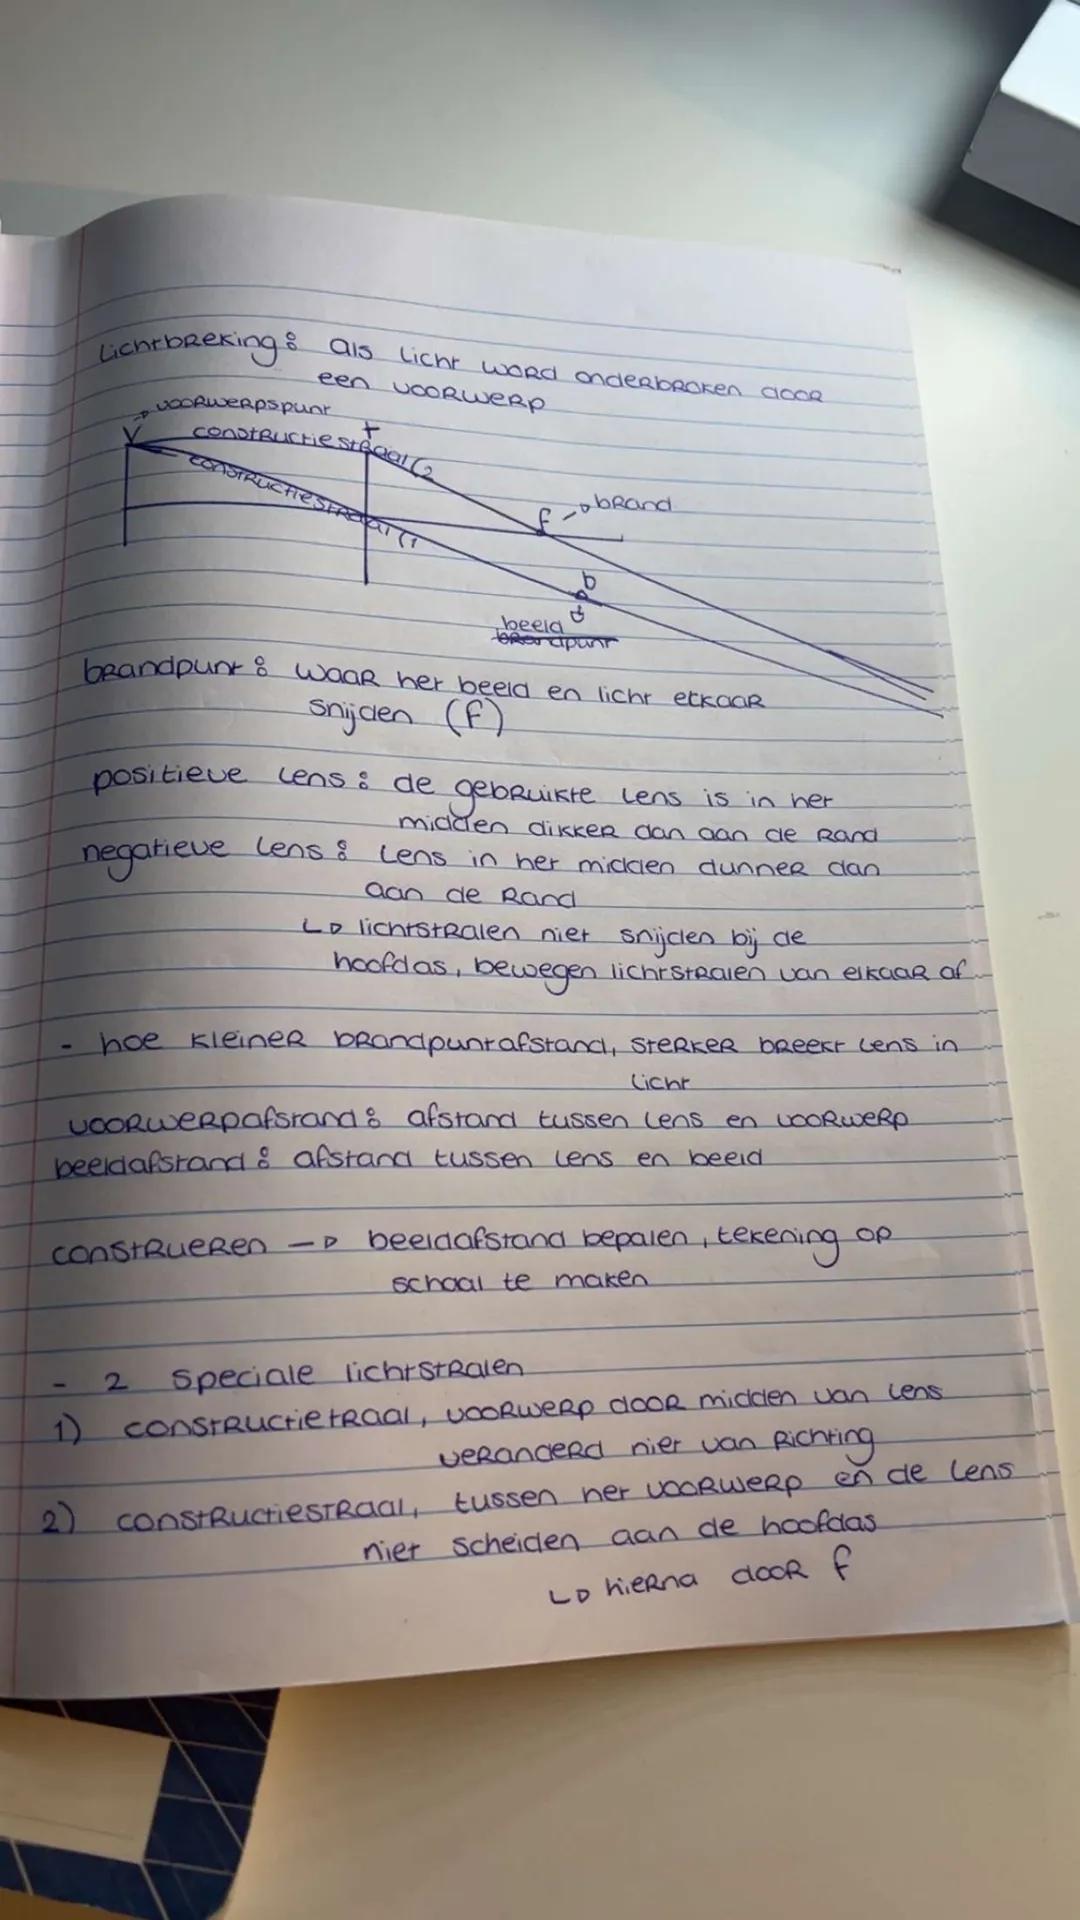 Lichtbreking: als licht word onderbroken door
een voorwerp
voorwerpspunt
V constructiestraal 2 +
constructiestraal 1
f brand
b
beeld
brandpunt
brandpunt: waar het beeld en licht elkaar
snijden (f)
positieve lens: de gebruikte lens is in het
midden dikker dan aan de rand
negatieve lens: lens in het midden dunner dan
aan de rand
↳ lichtstralen niet snijden bij de
hoofdas, bewegen lichtstralen van elkaar af
- hoe kleiner brandpuntafstand, sterker breekt lens in
licht
voorwerpafstand: afstand tussen lens en voorwerp
beeldafstand: afstand tussen lens en beeld
construeren → beeldafstand bepalen, tekening op
schaal te maken
- 2 speciale lichtstralen
1) constructietraal, voorwerp door midden van lens
veranderd niet van richting
2) constructiestraal, tussen het voorwerp en de lens
niet scheiden aan de hoofdas
↳ hierna door f